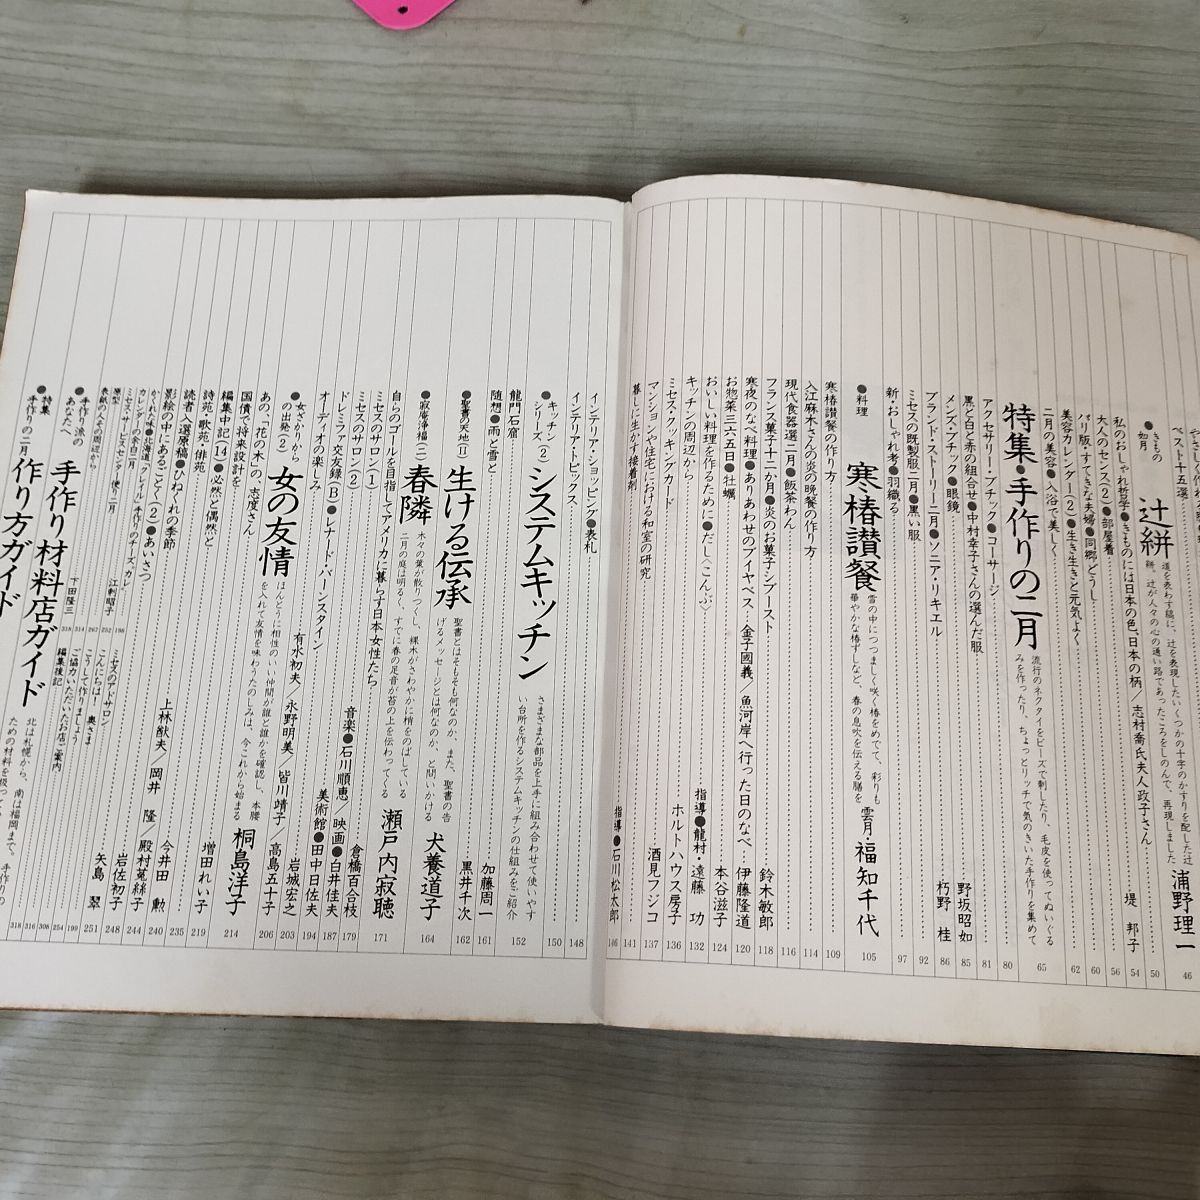 ●きもの 如月
辻絣
浦野理一
46
50
私のおしゃれ哲学●きものには日本の色、日本の柄／志村喬氏夫人政子さん
54
大人のセンス(2)●部屋着
堤 邦子
56
パリ版・すてきな夫婦●同郷どうし
60
美容カレンダー(2)●生き生きと元気よく
62
二月の美容●入浴で美しく
特集●手作りの二月
流行のネクタイをビーズで刺したり、毛皮を使ってぬいぐる
みを作ったり、ちょっとリッチで気のきいた手作りを集めて
65
アクセサリー・ブチック●コーサージ
80
黒と白と赤の組合せ●中村幸子さんの選んだ服
81
メンズ・ブチック●眼鏡
野坂昭如
85
ブランド・ストーリー二月●ソニア・リキエル
朽野 桂
86
ミセスの既製服二月●黒い服
92
新・おしゃれ考●羽織る
97
●料理
寒椿讃餐
雪の中につつましく咲く椿をめでて、彩りも
華やかな椿ずしなど、春の息吹を伝える膳を
雲月・福知千代
105
寒椿讃餐の作り方
109
入江麻木さんの炎の晩餐の作り方
114
現代食器選二月●飯茶わん
116
フランス菓子十二か月●炎のお菓子シブースト
鈴木敏郎
118
寒夜のなべ料理●ありあわせのブイヤベス 金子國義／魚河岸へ行った日のなべ
伊藤隆道
120
お惣菜三六五日●牡蠣
本谷滋子
124
おいしい料理を作るために●だし〈こんぶ〉
指導●龍村・遠藤 功
132
キッチンの周辺から
ミセス・クッキングカード
ホルトハウス房子
136
マンションや住宅における和室の研究
酒見フジコ
137
141
暮しに生かす接着剤
指導●石川松太郎
146
インテリア・ショッピング●表札
148
インテリア・トピックス
150
●キッチン シリーズ(2)
システムキッチン
さまざまな部品を上手に組み合わせて使いやす
い台所を作るシステムキッチンの仕組みをご紹介
152
龍門石窟
加藤周一
161
随想●雨と雪と
黒井千次
162
●聖書の天地(11)
生ける伝承
聖書とはそもそも何なのか、また、聖書の告
げるメッセージとは何なのか、と問いかける
犬養道子
164
●寂庵浄福(二)
春隣
木々の葉が散りつくし、裸木がさわやかに梢をのばしている
二月の庭は明るく、すでに春の足音が苔の上を伝わってくる
瀬戸内寂聴
171
自らのゴールを目指してアメリカに暮らす日本女性たち
ミセスのサロン(1)
倉橋百合枝
179
ミセスのサロン(2)
音楽●石川順恵／映画●白井佳夫
187
ドレミファ交友録(B)●レナード・バーンスタイン
美術館●田中日佐夫
194
オーディオの楽しみ
岩城宏之
203
●女ざかりから の出発(2)
有水初夫／永野明美／皆川靖子／高島五十子
206
女の友情
ほんとうに相性のいい仲間が誰と誰かを確認し、本腰
を入れて友情を味わうたのしみは、今これから始まる
桐島洋子
214
あの、「花の木」の、志度さん
国債で将来設計を
編集中記(14)●必然と偶然と
増田れい子
219
詩苑・歌苑・俳苑
読者入選原稿●ひねくれの季節
235
影絵の中にあるごとく(2)●あいさつ
今井田 勲
240
上林猷夫／岡井 隆／殿村菟絲子
244
かくれた味●北海道「クレイル」手作りのチーズ
岩佐初子
248
カレンダーの余白二月
ミセス・レター
矢島 翠
251
表紙のその周辺から
江刺昭子
198
252
267
●手作り派の あなたへ
下田隆三
314
318
●特集 手作りの二月
手作り材料店ガイド
作り方ガイド
北は札幌から、南は福岡まで、手作りの
ミセスのアドサロン
こんにちは！ 奥さま
こうして作りましょう
ご協力いただいたお店ご案内
編集後記
199
254
308
316
318